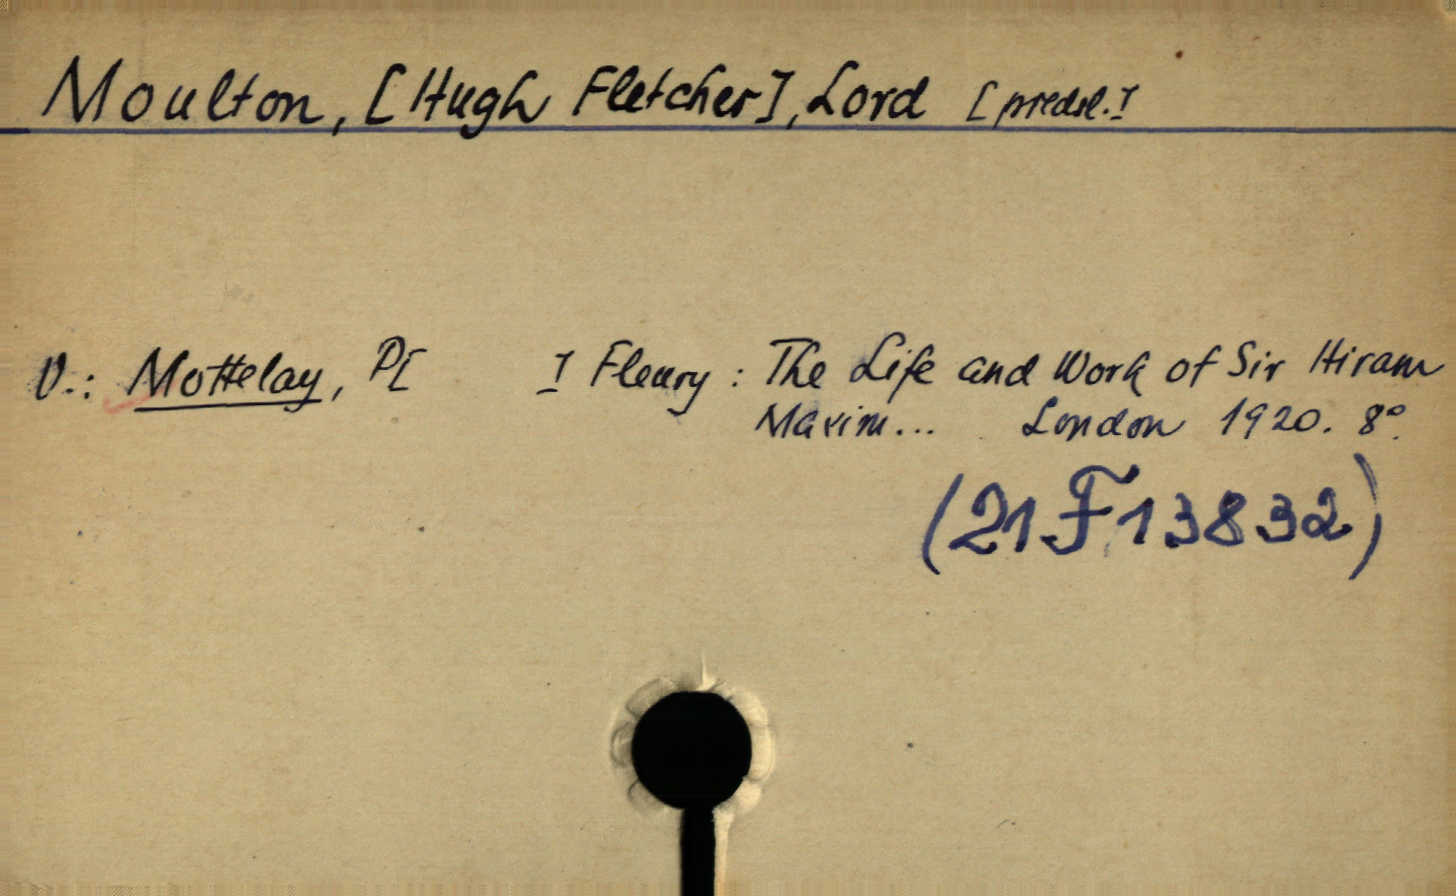 Moulton, [Hugh Fletcher], Lord [předsl.]
V.: Mottelay, P[ ] Fleury: The Life and Work of Sir Hiram
Maxim... London 1920. 8°.
(21 F 13832)